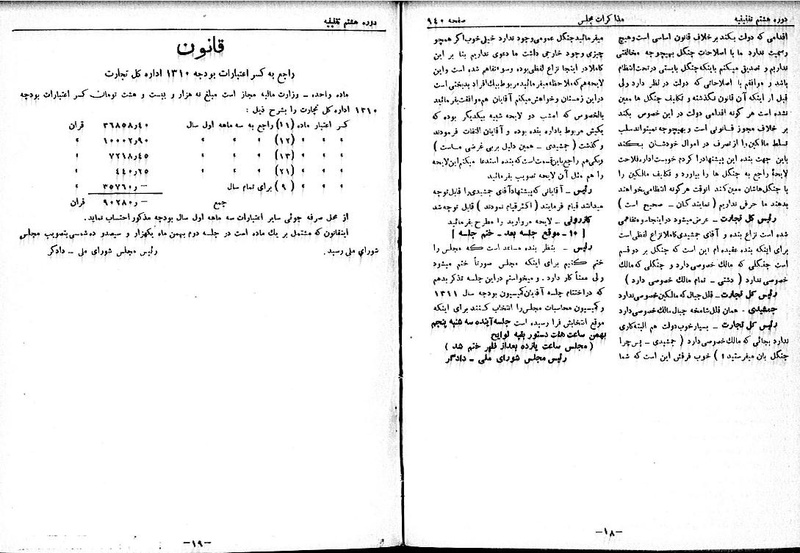 دوره هشتم تقنینیه
مذاکرات مجلس
صفحه ۹۴۰
اقدامی که دولت بکند بر خلاف قانون اساسی است و هیچ
رسمیت ندارد ما با اصلاحات جنگل بهیچوجه مخالفتی
نداریم و تصدیق میکنم باینکه جنگل بایستی در تحت انتظام
باشد و موافقم با اصلاحاتی که دولت در نظر دارد ولی
قبل از اینکه آن قانون نگذشته و تکلیف جنگل ها معین
نشده است هر گونه اقدامی دولت در این خصوص بکند
بر خلاف مجوز قانونی است و بهیچوجه نمیتواند سلب
تسلط مالکین را از تصرف در اموال خودشان بکند
باین جهت بنده این پیشنهاد را کردم خوبست اداره فلاحت
لایحهٔ راجع به جنگل ها را بیاورد و تکلیف مالکین را
با جنگل‌هاشان معین کند آنوقت هر گونه انتظامی خواهند
بدهند ما حرفی نداریم (نمایندگان - صحیح است)
رئیس کل تجارت - عرض میشود در اینجا سوءتفاهمی
شده است نزاع بنده و آقای جمشیدی کاملا نزاع لفظی است
برای اینکه بنده عقیده ام این است که جنگل بر دو قسم
است جنگلی که مالک خصوصی دارد و جنگلی که مالک
خصوصی ندارد (دشتی - تمام مالک خصوصی دارد)
رئیس کل تجارت - قلل جبال که مالکین خصوصی ندارد
جمشیدی - همان قلل شامخه جبال مالک خصوصی دارد
رئیس کل تجارت - بسیار خوب دولت هم البته کاری
ندارد بجائی که مالک خصوصی دارد (جمشیدی - پس چرا
جنگل بان میفرستید؟) خوب فرقش این است که شما
میفرمائید جنگل عمومی وجود ندارد خیلی خوب اگر همچو
چیزی وجود خارجی داشت ما دعوی نداریم بنا بر این
کاملا در اینجا نزاع لفظی بوده و سوءتفاهم شده است و این
لایحه هم که ملاحظه میفرمائید مربوط بیک افراد بدبختی است
در این زمستان و خواهش میکنم آقایان هم موافقت بفرمائید
بالخصوص که امشب دو لایحه شبیه بیکدیگر بوده که
یکیش مربوط باداره بنده بود و آقایان التفات فرمودند
و گذشت (جمشیدی - همین دلیل بر بی غرضی ماست)
و یکی هم راجع باین قسمت است که بنده استدعا میکنم این لایحه
را هم مثل آن لایحه تصویب بفرمائید
رئیس - آقایانی که پیشنهاد آقای جمشیدی را قابل توجه
میدانند قیام فرمایند (اکثر قیام نمودند) قابل توجه شد
کازرونی - لایحه دیروید را مطرح بفرمائید
[۱۰ - موقع جلسه بعد - ختم جلسه]
رئیس - بنظر بنده مساعد است که مجلس را
ختم کنیم برای اینکه مجلس صورتاً ختم میشود
ولی معناً کار دارد . و میخواستم در این جلسه تذکر بدهم
که در اختتام جلسه آقایان کمیسیون بودجه سال ۱۳۱۱
و کمیسیون محاسبات مجلس را انتخاب کنند برای اینکه
موقع انتخابش فرا رسیده است جلسه آینده سه شنبه پنجم
بهمن ساعت هشت دستور بقیه لوایح
(مجلس ساعت یازده بعد از ظهر ختم شد)
رئیس مجلس شورای ملی - دادگر
-۱۸-
دوره هشتم تقنینیه
قانون
راجع به کسر اعتبارات بودجه ۱۳۱۰ اداره کل تجارت
ماده واحده - وزارت مالیه مجاز است مبلغ نه هزار و بیست و هشت تومان کسر اعتبارات بودجه
۱۳۱۰ اداره کل تجارت را بشرح ذیل :
کسر اعتبار ماده (۱۱) راجع به سه ماهه اول سال ۳۶۸۵۸ر۴۰ قران
» » » (۱۲) » » » » ۱۰۰۰۲ر۹۰ »
» » » (۱۳) » » » » ۷۷۱۸ر۴۵ »
» » » (۲۱) » » » » ۴۴۰ر۲۵ »
» » » (۹) برای تمام سال ۳۵۷۶۰ر- »
جمع ۹۰۲۸۰ر- قران
از محل صرفه جوئی سایر اعتبارات سه ماهه اول سال بودجه مذکور احتساب نماید.
اینقانون که مشتمل بر یک ماده است در جلسه دوم بهمن ماه یکهزار و سیصدو ده شمسی بتصویب مجلس
شورای ملی رسید.
رئیس مجلس شورای ملی - دادگر
-۱۹-